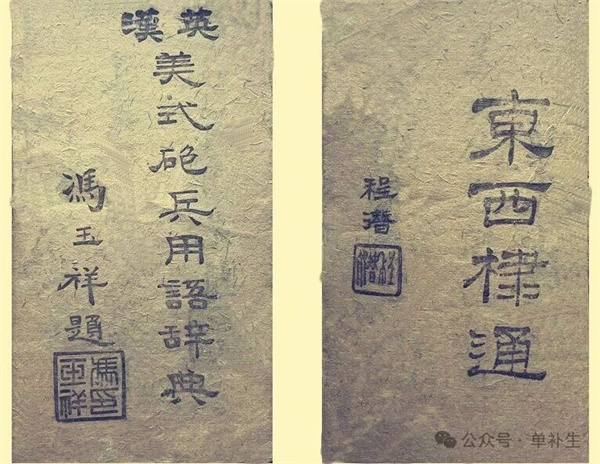 英漢
美式砲兵用語辞典
馮玉祥題
馮印玉祥
東西棣通
程潛
公众号 · 单补生